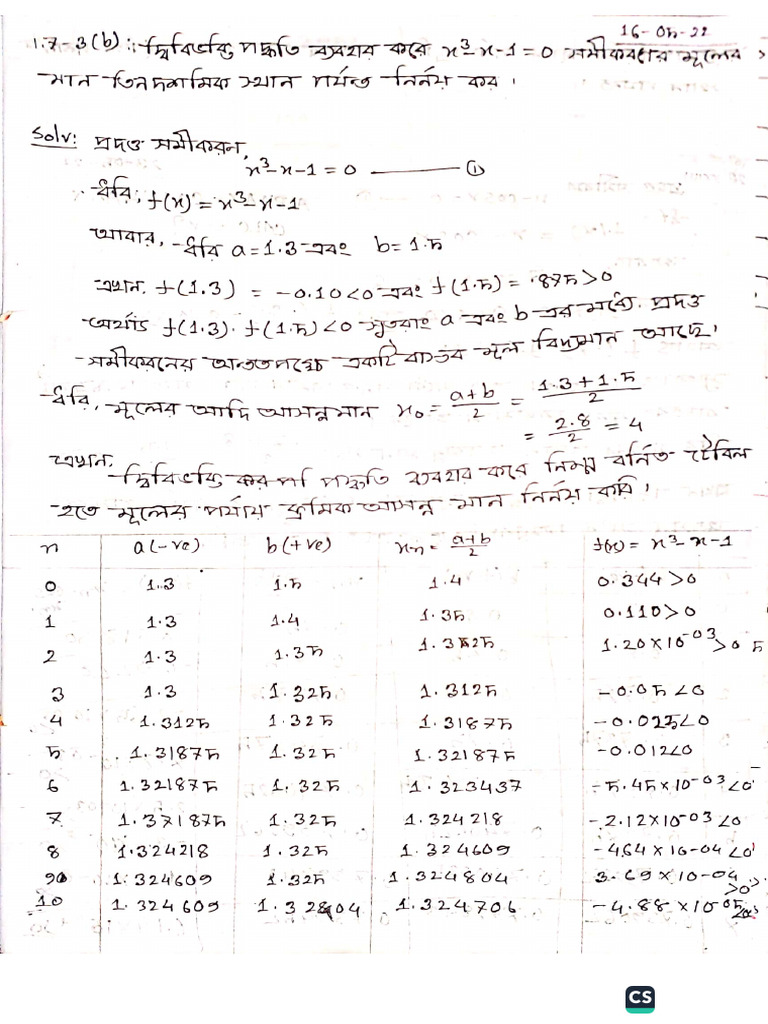 16-05-22
1.7-3(b):: দ্বিবিভক্তি পদ্ধতি ব্যবহার করে x³-x-1=0 সমীকরণের মূলের
মান তিন দশমিক স্থান পর্যন্ত নির্নয় কর।
Solv: প্রদত্ত সমীকরন,
x³-x-1=0 ——— ①
ধরি, f(x)=x³-x-1
আবার, ধরি a=1.3 এবং b=1.5
এখন, f(1.3) = -0.10<0 এবং f(1.5) = .875>0
অর্থাৎ f(1.3). f(1.5)<0 সুতরাং a এবং b এর মধ্যে প্রদত্ত
সমীকরনের অন্ততপক্ষে একটি বাস্তব মূল বিদ্যমান আছে।
ধরি, মূলের আদি আসন্নমান x₀ = a+b/2 = 1.3+1.5/2
= 2.8/2 = 4
এখন,
দ্বিবিভক্তি করণ পদ্ধতি ব্যবহার করে নিম্ন বর্নিত টেবিল
হতে মূলের পর্যায় ক্রমিক আসন্ন মান নির্নয় করি।
n a(-ve) b(+ve) xn = a+b/2 f(x) = x³-x-1
0 1.3 1.5 1.4 0.344>0
1 1.3 1.4 1.35 0.110>0
2 1.3 1.35 1.325 1.20×10⁻⁰³>0
3 1.3 1.325 1.3125 -0.05<0
4 1.3125 1.325 1.31875 -0.025<0
5 1.31875 1.325 1.321875 -0.012<0
6 1.321875 1.325 1.323437 -5.45×10⁻⁰³<0
7 1.371875 1.325 1.324218 -2.12×10⁻⁰³<0
8 1.324218 1.325 1.324609 -4.64×10-04<0
9 1.324609 1.325 1.324804 3.69×10-04>0
10 1.324609 1.324804 1.324706 -4.88×10⁻⁰⁵<0
CS